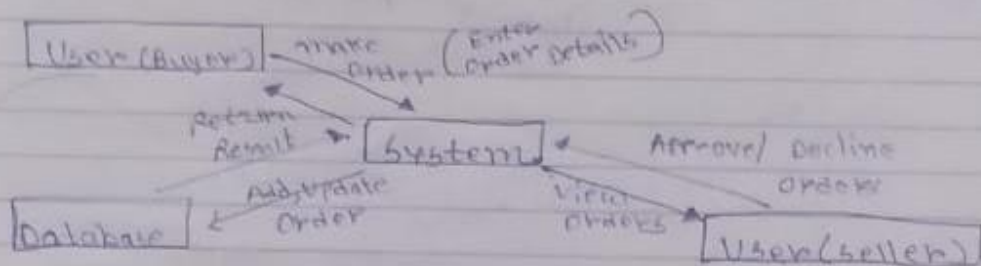 User (Buyer)
make
order
(Enter
order Details)
Return
Result
System
Approve/ Decline
orders
Add, Update
order
View
orders
Database
User (Seller)